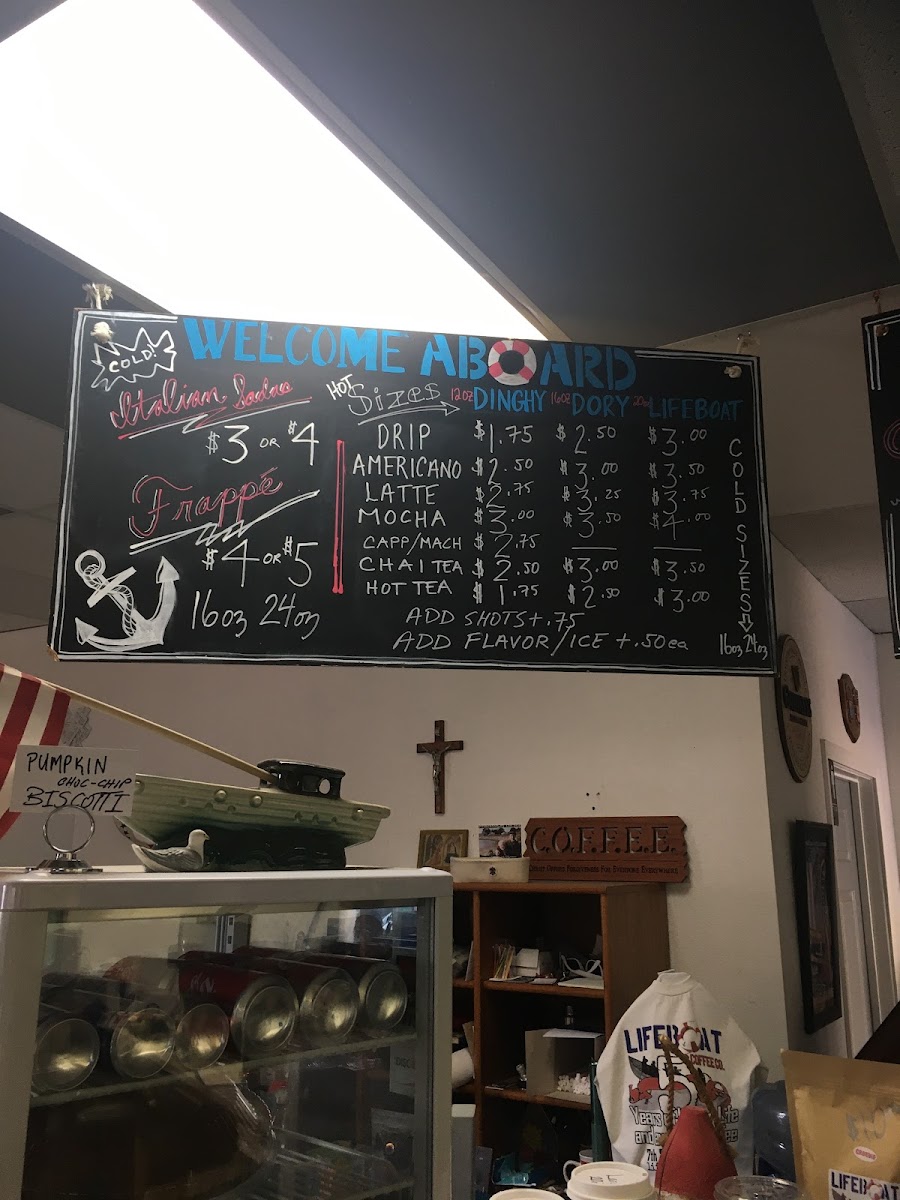 WELCOME ABOARD
COLD!
Italian Sodas
$3 OR $4
Frappé
$4 OR $5
16oz 24oz
HOT Sizes 12oz DINGHY 16oz DORY 20oz LIFEBOAT
DRIP $1.75 $2.50 $3.00
AMERICANO $2.50 $3.00 $3.50
LATTE $2.75 $3.25 $3.75
MOCHA $3.00 $3.50 $4.00
CAPP/MACH $2.75 — —
CHAI TEA $2.50 $3.00 $3.50
HOT TEA $1.75 $2.50 $3.00
ADD SHOTS +.75
ADD FLAVOR/ICE +.50ea
COLD SIZES
16oz 24oz
PUMPKIN
CHOC-CHIP
BISCOTTI
C.O.F.F.E.E.
LIFEBOAT
COFFEE CO.
Years
and
7th
LIFEBOAT